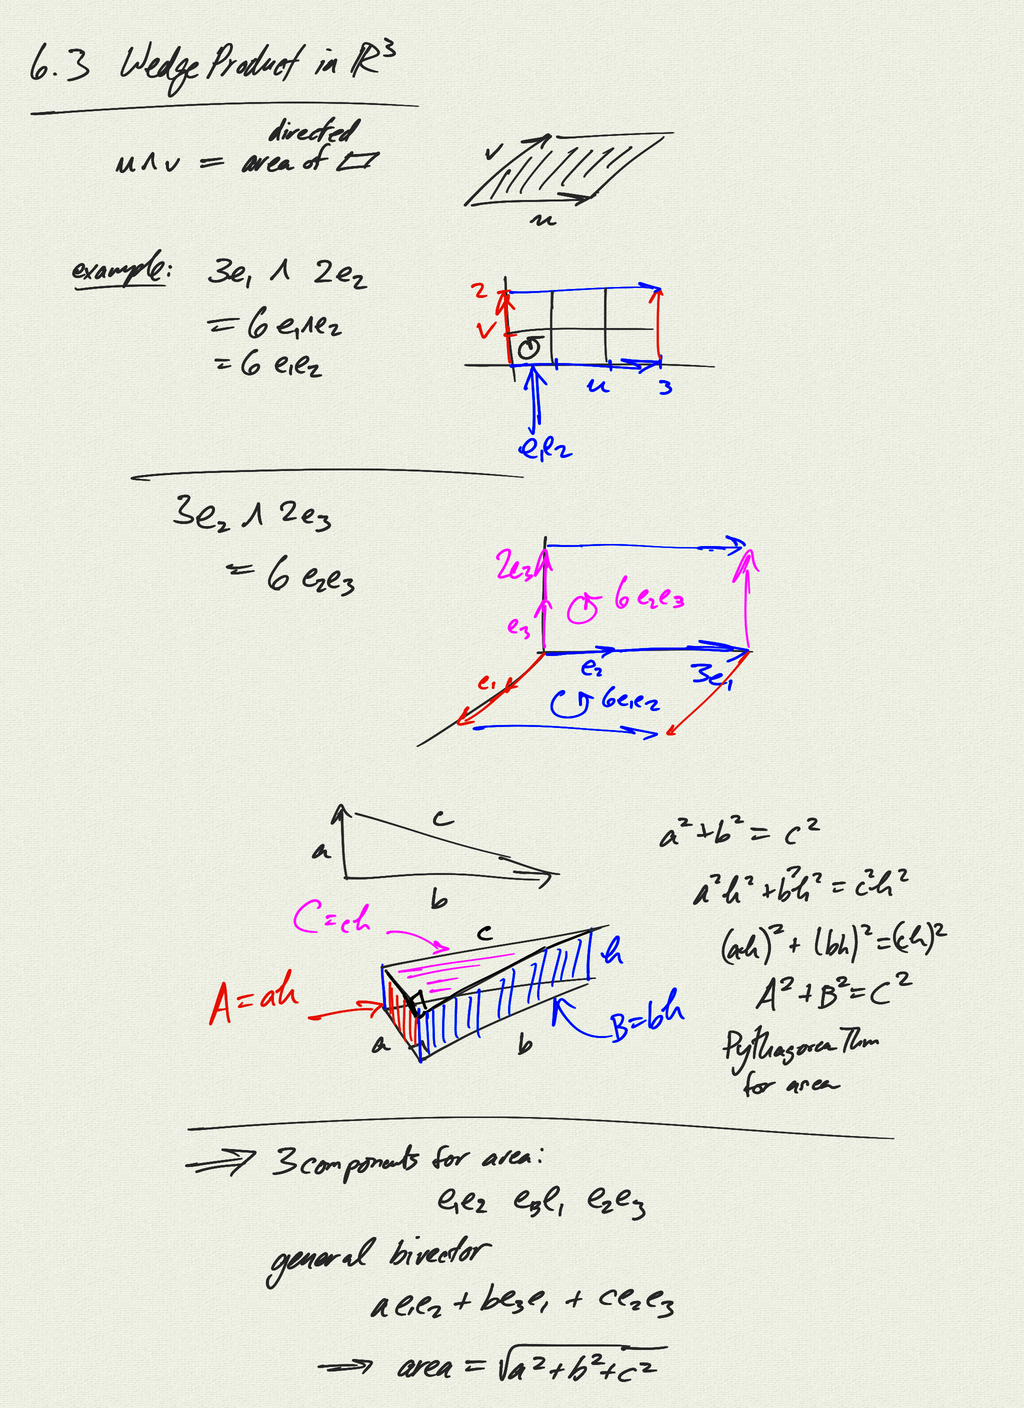 6.3 Wedge Product in ℝ³
directed
u∧v = area of ▱
v
u
example: 3e₁ ∧ 2e₂
= 6 e₁∧e₂
= 6 e₁e₂
2
v
u
3
e₁e₂
3e₂ ∧ 2e₃
= 6 e₂e₃
2e₃
6e₂e₃
e₃
e₂
3e₁
e₁
6e₁e₂
c
a
b
a² + b² = c²
a²h² + b²h² = c²h²
(ah)² + (bh)² = (ch)²
A² + B² = C²
Pythagorea Thm
for area
C=ch
c
h
A=ah
B=bh
a
b
⇒ 3 components for area:
e₁e₂ e₃e₁ e₂e₃
general bivector
ae₁e₂ + be₃e₁ + ce₂e₃
⇒ area = √(a²+b²+c²)